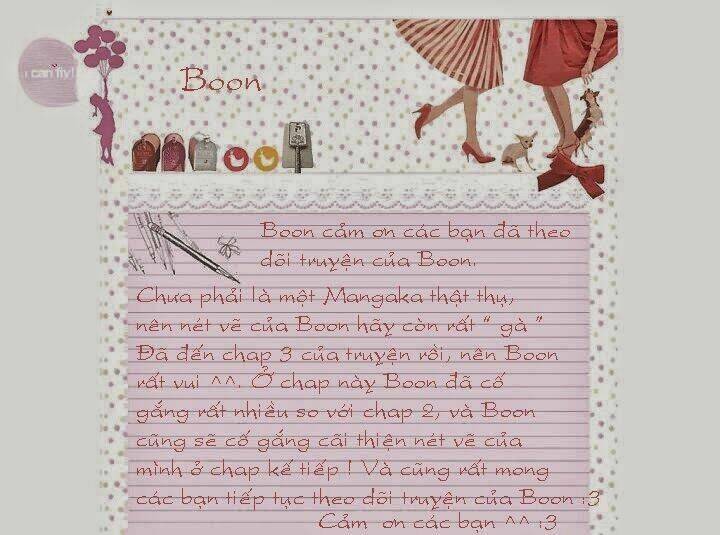 i can fly!
Boon
Boon cảm ơn các bạn đã theo
dõi truyện của Boon.
Chưa phải là một Mangaka thật thụ,
nên nét vẽ của Boon hãy còn rất “ gà ”
Đã đến chap 3 của truyện rồi, nên Boon
rất vui ^^. Ở chap này Boon đã cố
gắng rất nhiều so với chap 2, và Boon
cũng sẽ cố gắng cãi thiện nét vẽ của
mình ở chap kế tiếp ! Và cũng rất mong
các bạn tiếp tục theo dõi truyện của Boon :3
Cảm ơn các bạn ^^ :3